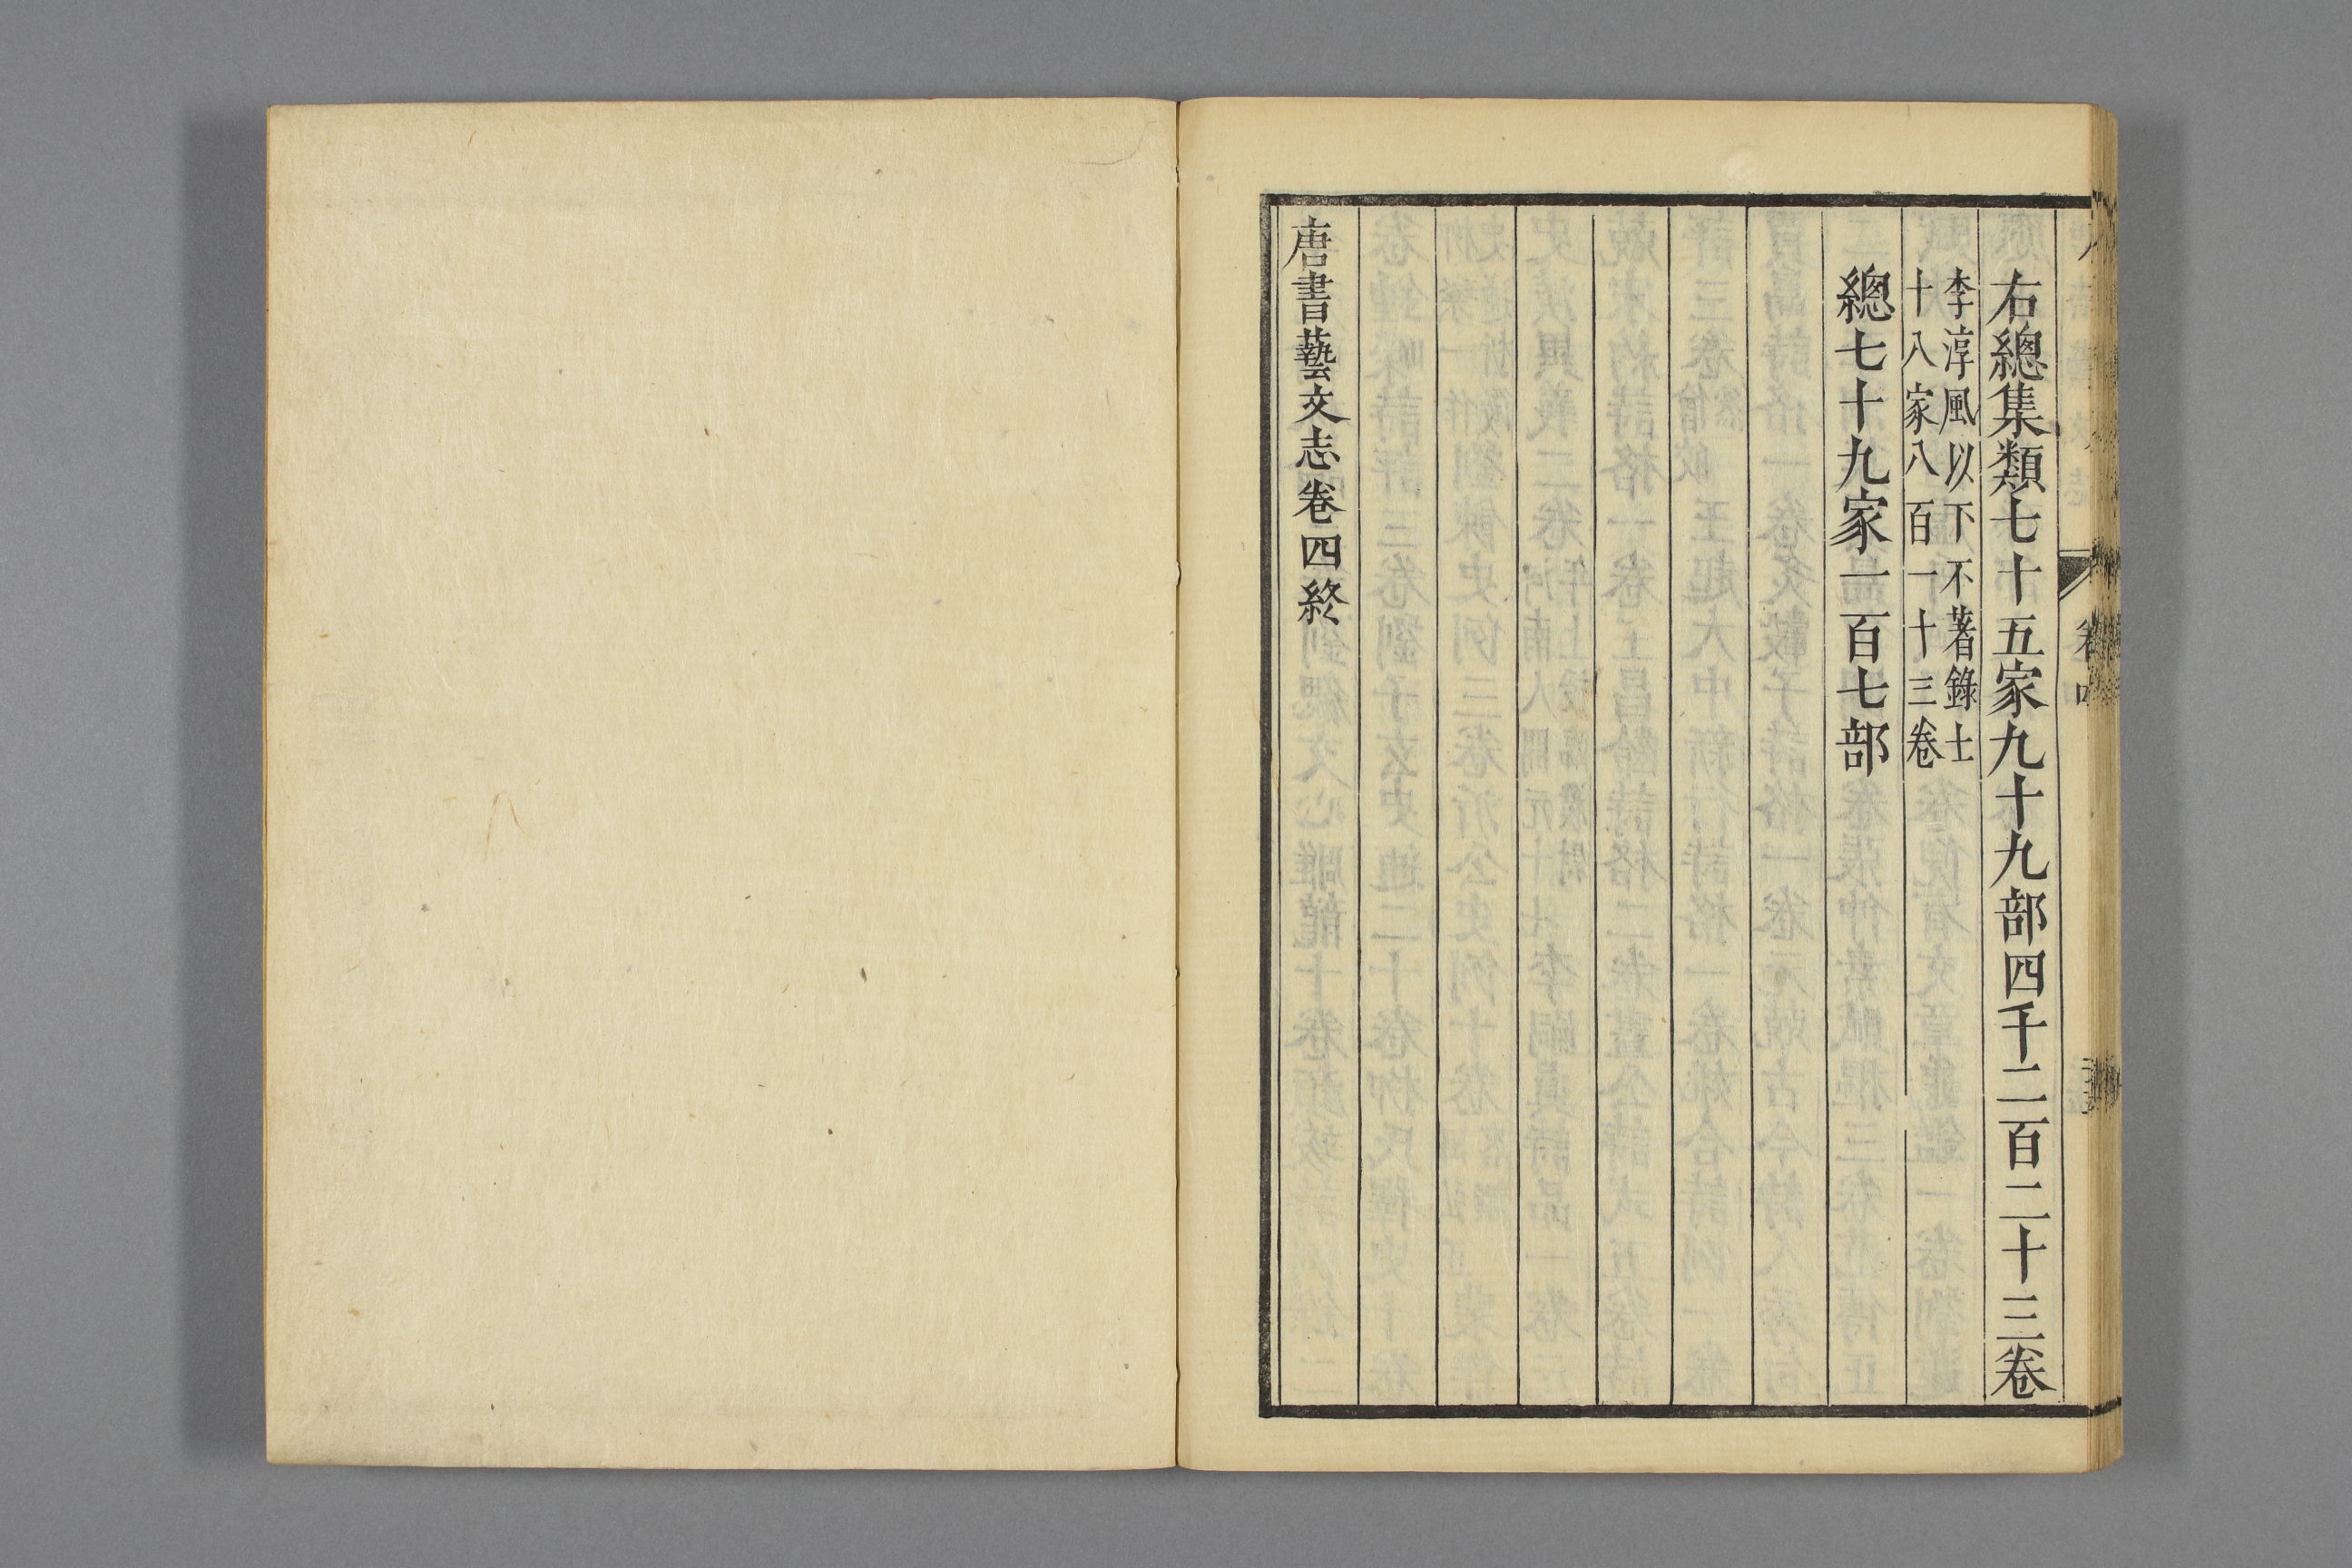 右總集類七十五家九十九部四千二百二十三卷
李淳風以下不著錄士
十八家八百一十三卷
總七十九家一百七部
唐書藝文志卷四終